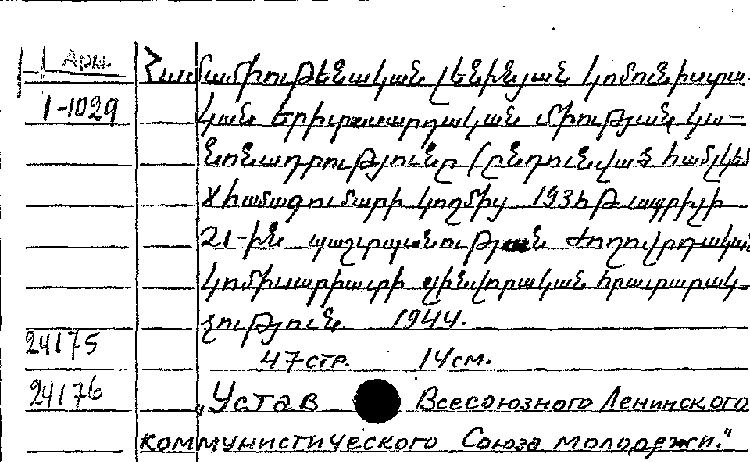 Арм. Համամիութենական լենինյան կոմունիստա-
1-1029 կան երիտասարդական միության կա-
նոնադրությունը (ընդունված համլկեմ
X համագումարի կողմից 1936թ ապրիլի
21-ին պաշտպանության ժողովրդական
կոմիսարիատի զինվորական հրատարակ-
չություն. 1944.
24175
47 стр. 14 см.
24176
„Устав Всесоюзного Ленинского
коммунистического Союза молодежи."